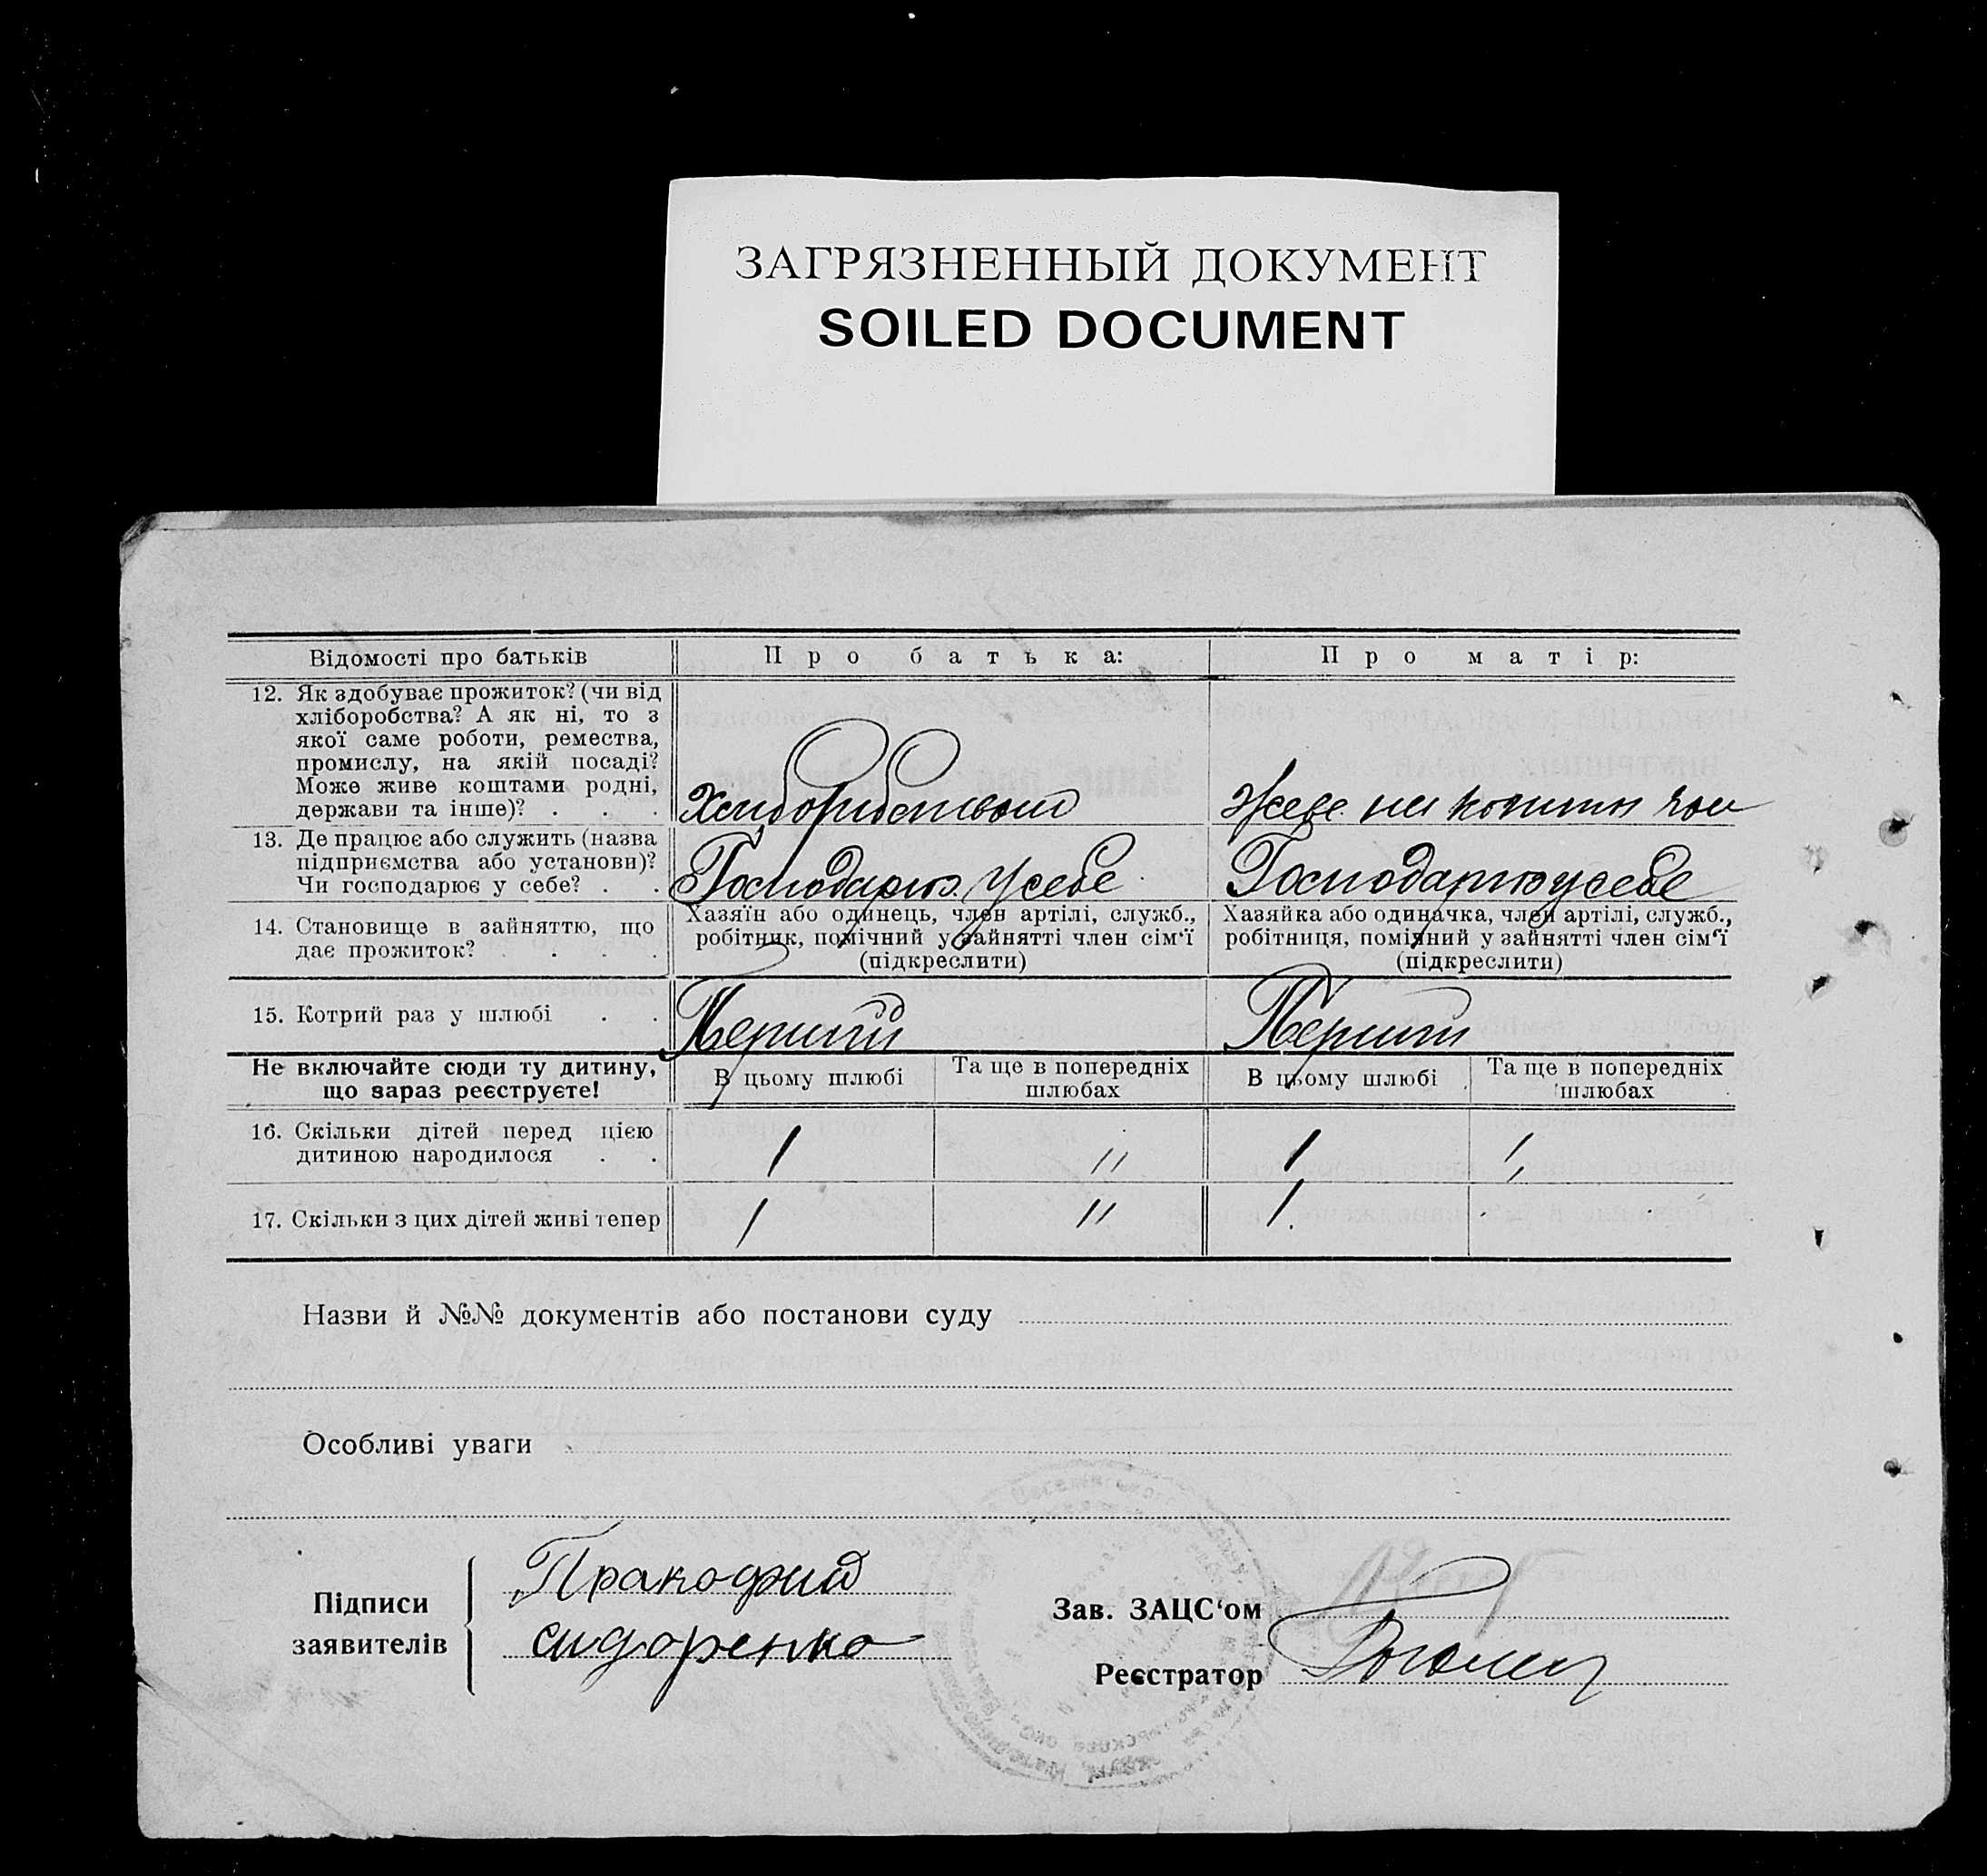 ЗАГРЯЗНЕННЫЙ ДОКУМЕНТ
SOILED DOCUMENT
Відомості про батьків
Про батька:
Про матір:
12. Як здобуває прожиток? (чи від
хліборобства? А як ні, то з
якої саме роботи, ремества,
промислу, на якій посаді?
Може живе коштами родні,
держави та інше)? . . .
Хліборобством
Живе на кошти
13. Де працює або служить (назва
підприємства або установи)?
Чи господарює у себе? . .
Господарює у себе
Господарює у себе
14. Становище в зайняттю, що
дає прожиток? . . . .
Хазяїн або одинець, член артілі, служб.,
робітник, помічний у зайнятті член сім'ї
(підкреслити)
Хазяйка або одиначка, член артілі, служб.,
робітниця, помічний у зайнятті член сім'ї
(підкреслити)
15. Котрий раз у шлюбі . .
Перший
Перший
Не включайте сюди ту дитину,
що зараз реєструєте!
В цьому шлюбі
Та ще в попередніх
шлюбах
В цьому шлюбі
Та ще в попередніх
шлюбах
16. Скільки дітей перед цією
дитиною народилося . .
1 " 1 "
17. Скільки з цих дітей живі тепер
1 " 1.
Назви й №№ документів або постанови суду
Особливі уваги
Підписи
заявителів
Пракофий
сидоренко
Зав. ЗАЦС'ом
Реєстратор